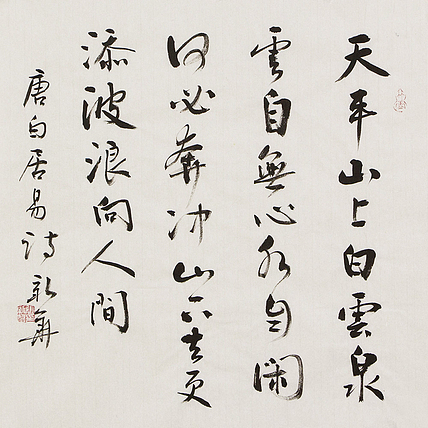 天平山上白雲泉
雲自無心水自閑
何必奔冲山下去更
添波浪向人間
唐白居易詩